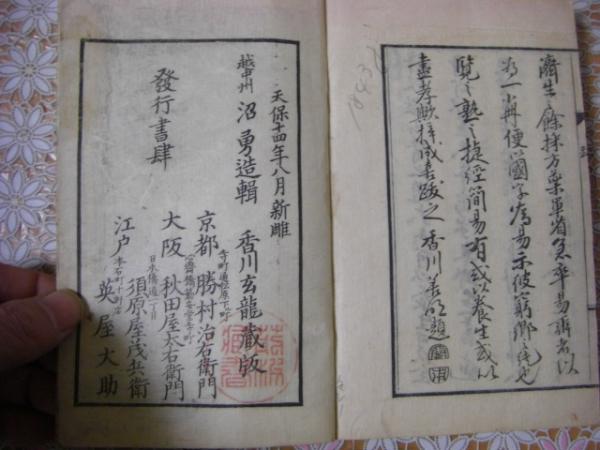 濟生之餘採方藥單省急卒易辨者以
為一冊便以國字寫易示彼窮鄉之民也
覽之熟之捷徑簡易有或以養生或以
盡孝歟梓成書跋之 香川 題
天保十四年八月新雕
越中州 沼勇造輯 香川玄龍藏版
發行書肆
寺町通松原下ル町
京都 勝村治右衛門
心齋橋筋安堂寺町
大阪 秋田屋太右衛門
日本橋通一丁目
須原屋茂兵衛
江戸
本石町十軒店
英屋大助
1843